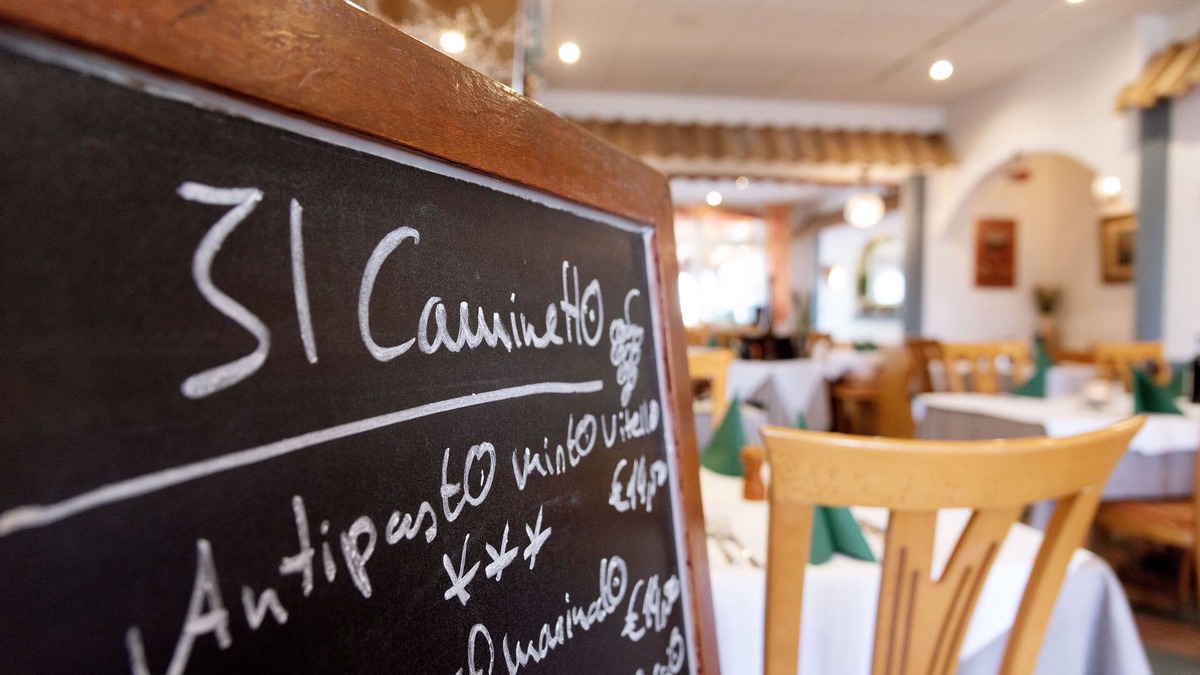 Il Caminetto
Antipasto misto vitello
€14,50
***
marinato